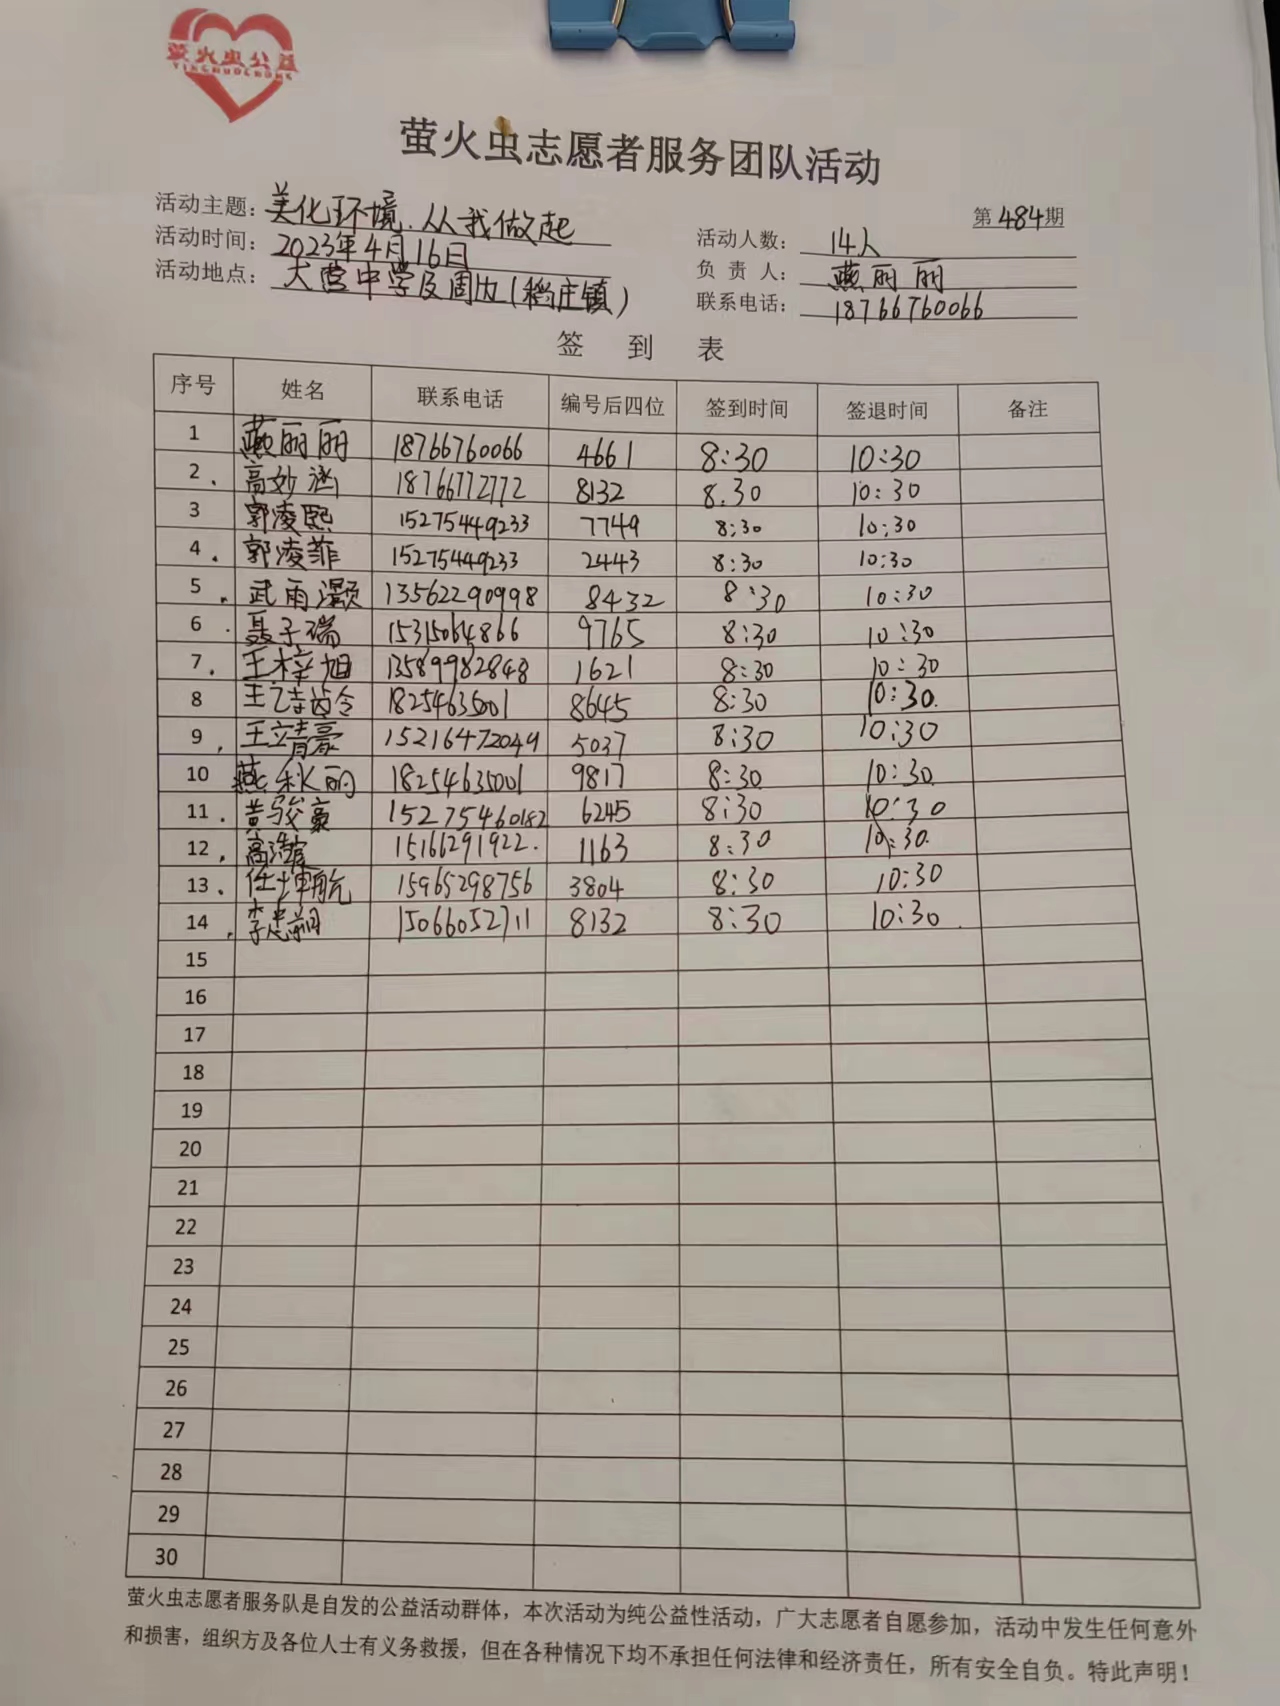 萤火虫公益
YINGHUOCHONG
萤火虫志愿者服务团队活动
第484期
活动主题：美化环境.从我做起
活动时间：2023年4月16日
活动地点：大营中学及周边(稻庄镇)
活动人数：14人
负责人：燕丽丽
联系电话：18766760066
签到表
序号 姓名 联系电话 编号后四位 签到时间 签退时间 备注
1 燕丽丽 18766760066 4661 8:30 10:30
2. 高妙涵 18766772772 8132 8.30 10:30
3 郭凌熙 15275449233 7749 8:30 10:30
4. 郭凌菲 15275449233 2443 8:30 10:30
5. 武雨灏 13562290998 8432 8:30 10:30
6. 聂子瑞 15315064866 9765 8:30 10:30
7. 王梓旭 13589982848 1621 8:30 10:30
8 王诗龄 18254635001 8645 8:30 10:30.
9. 王靖豪 15216472049 5037 8:30 10:30
10 燕秋丽 18254635001 9817 8:30 10:30
11. 黄骏豪 15275460182 6245 8:30 10:30
12. 高 15166291922. 1163 8:30 10:30.
13. 任坤航 15965298756 3804 8:30 10:30
14. 李忠 15066052711 8132 8:30 10:30.
15
16
17
18
19
20
21
22
23
24
25
26
27
28
29
30
萤火虫志愿者服务队是自发的公益活动群体，本次活动为纯公益性活动，广大志愿者自愿参加，活动中发生任何意外
和损害，组织方及各位人士有义务救援，但在各种情况下均不承担任何法律和经济责任，所有安全自负。特此声明！